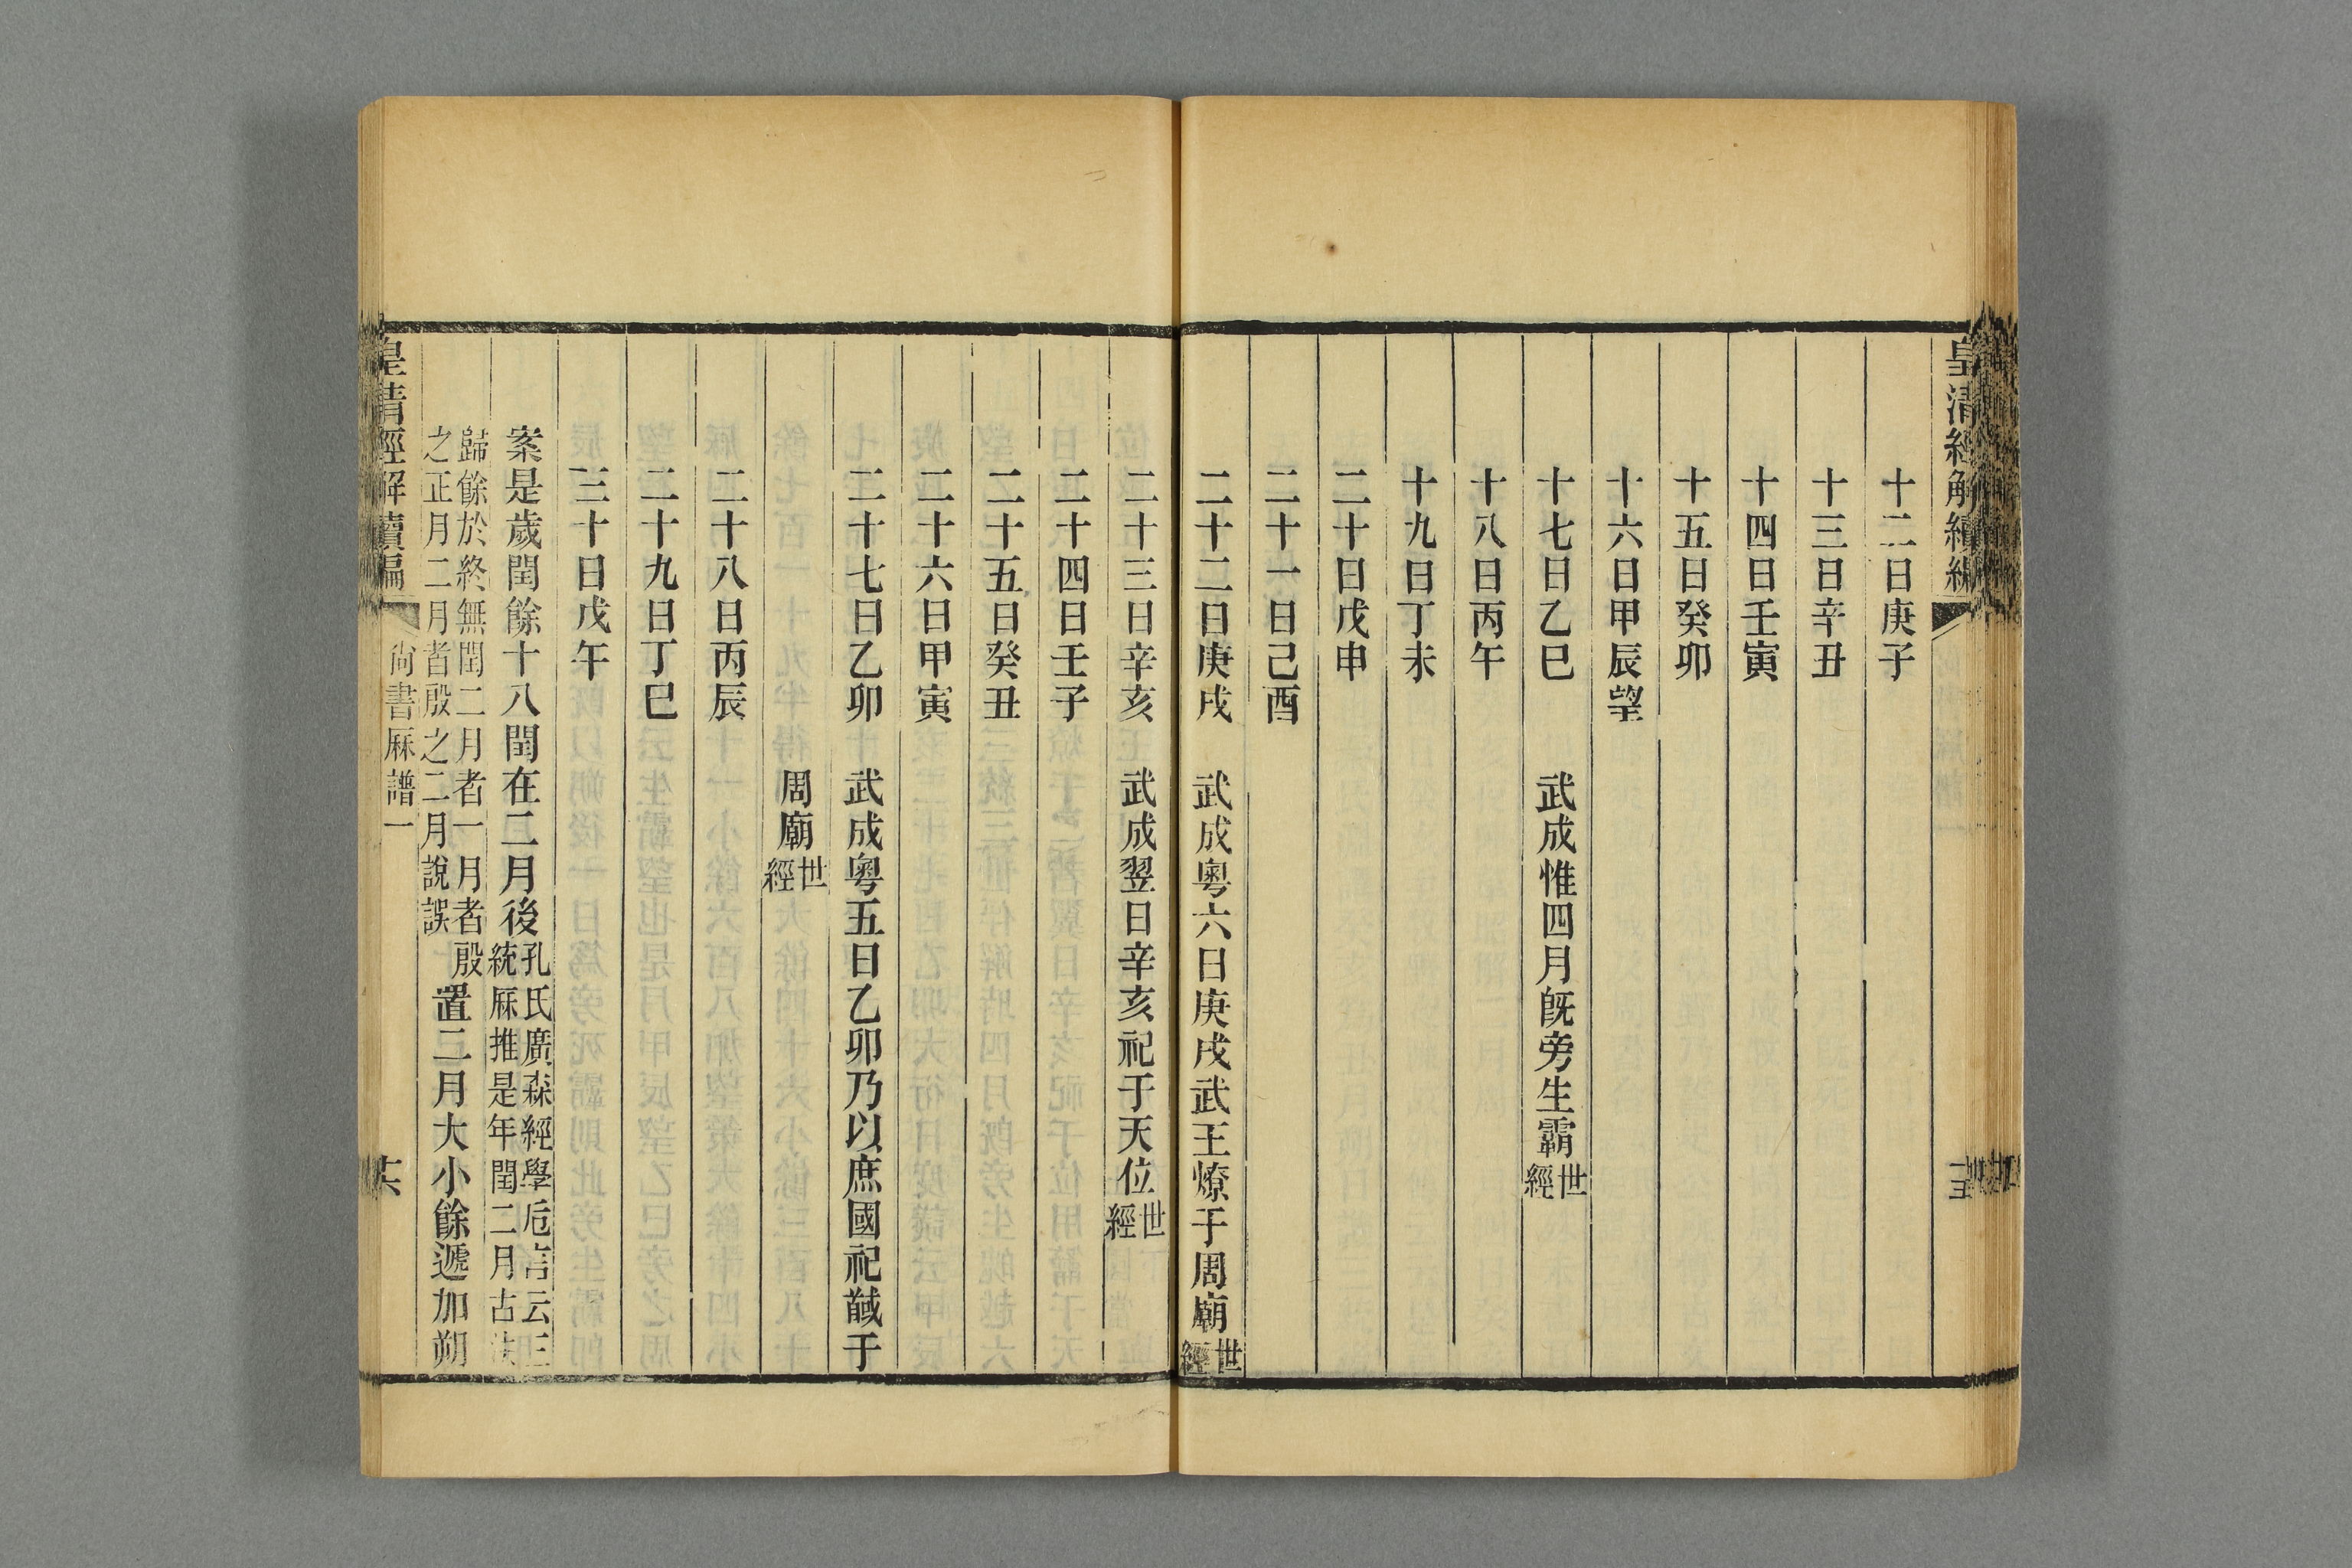 皇清經解續編
十二日庚子
十三日辛丑
十四日壬寅
十五日癸卯
十六日甲辰望
十七日乙巳　武成惟四月旣旁生霸世經
十八日丙午
十九日丁未
二十日戊申
二十一日己酉
二十二日庚戌　武成粵六日庚戌武王燎于周廟世經
二十三日辛亥　武成翌日辛亥祀于天位世經
二十四日壬子
二十五日癸丑
二十六日甲寅
二十七日乙卯　武成粵五日乙卯乃以庶國祀馘于
周廟世經
二十八日丙辰
二十九日丁巳
三十日戊午
案是歲閏餘十八閏在二月後孔氏廣森經學卮言云三
統厤推是年閏二月古法
歸餘於終無閏二月者一月者殷
之正月二月者殷之二月說誤
置二月大小餘遞加朔
皇清經解續編
尙書厤譜一
十六